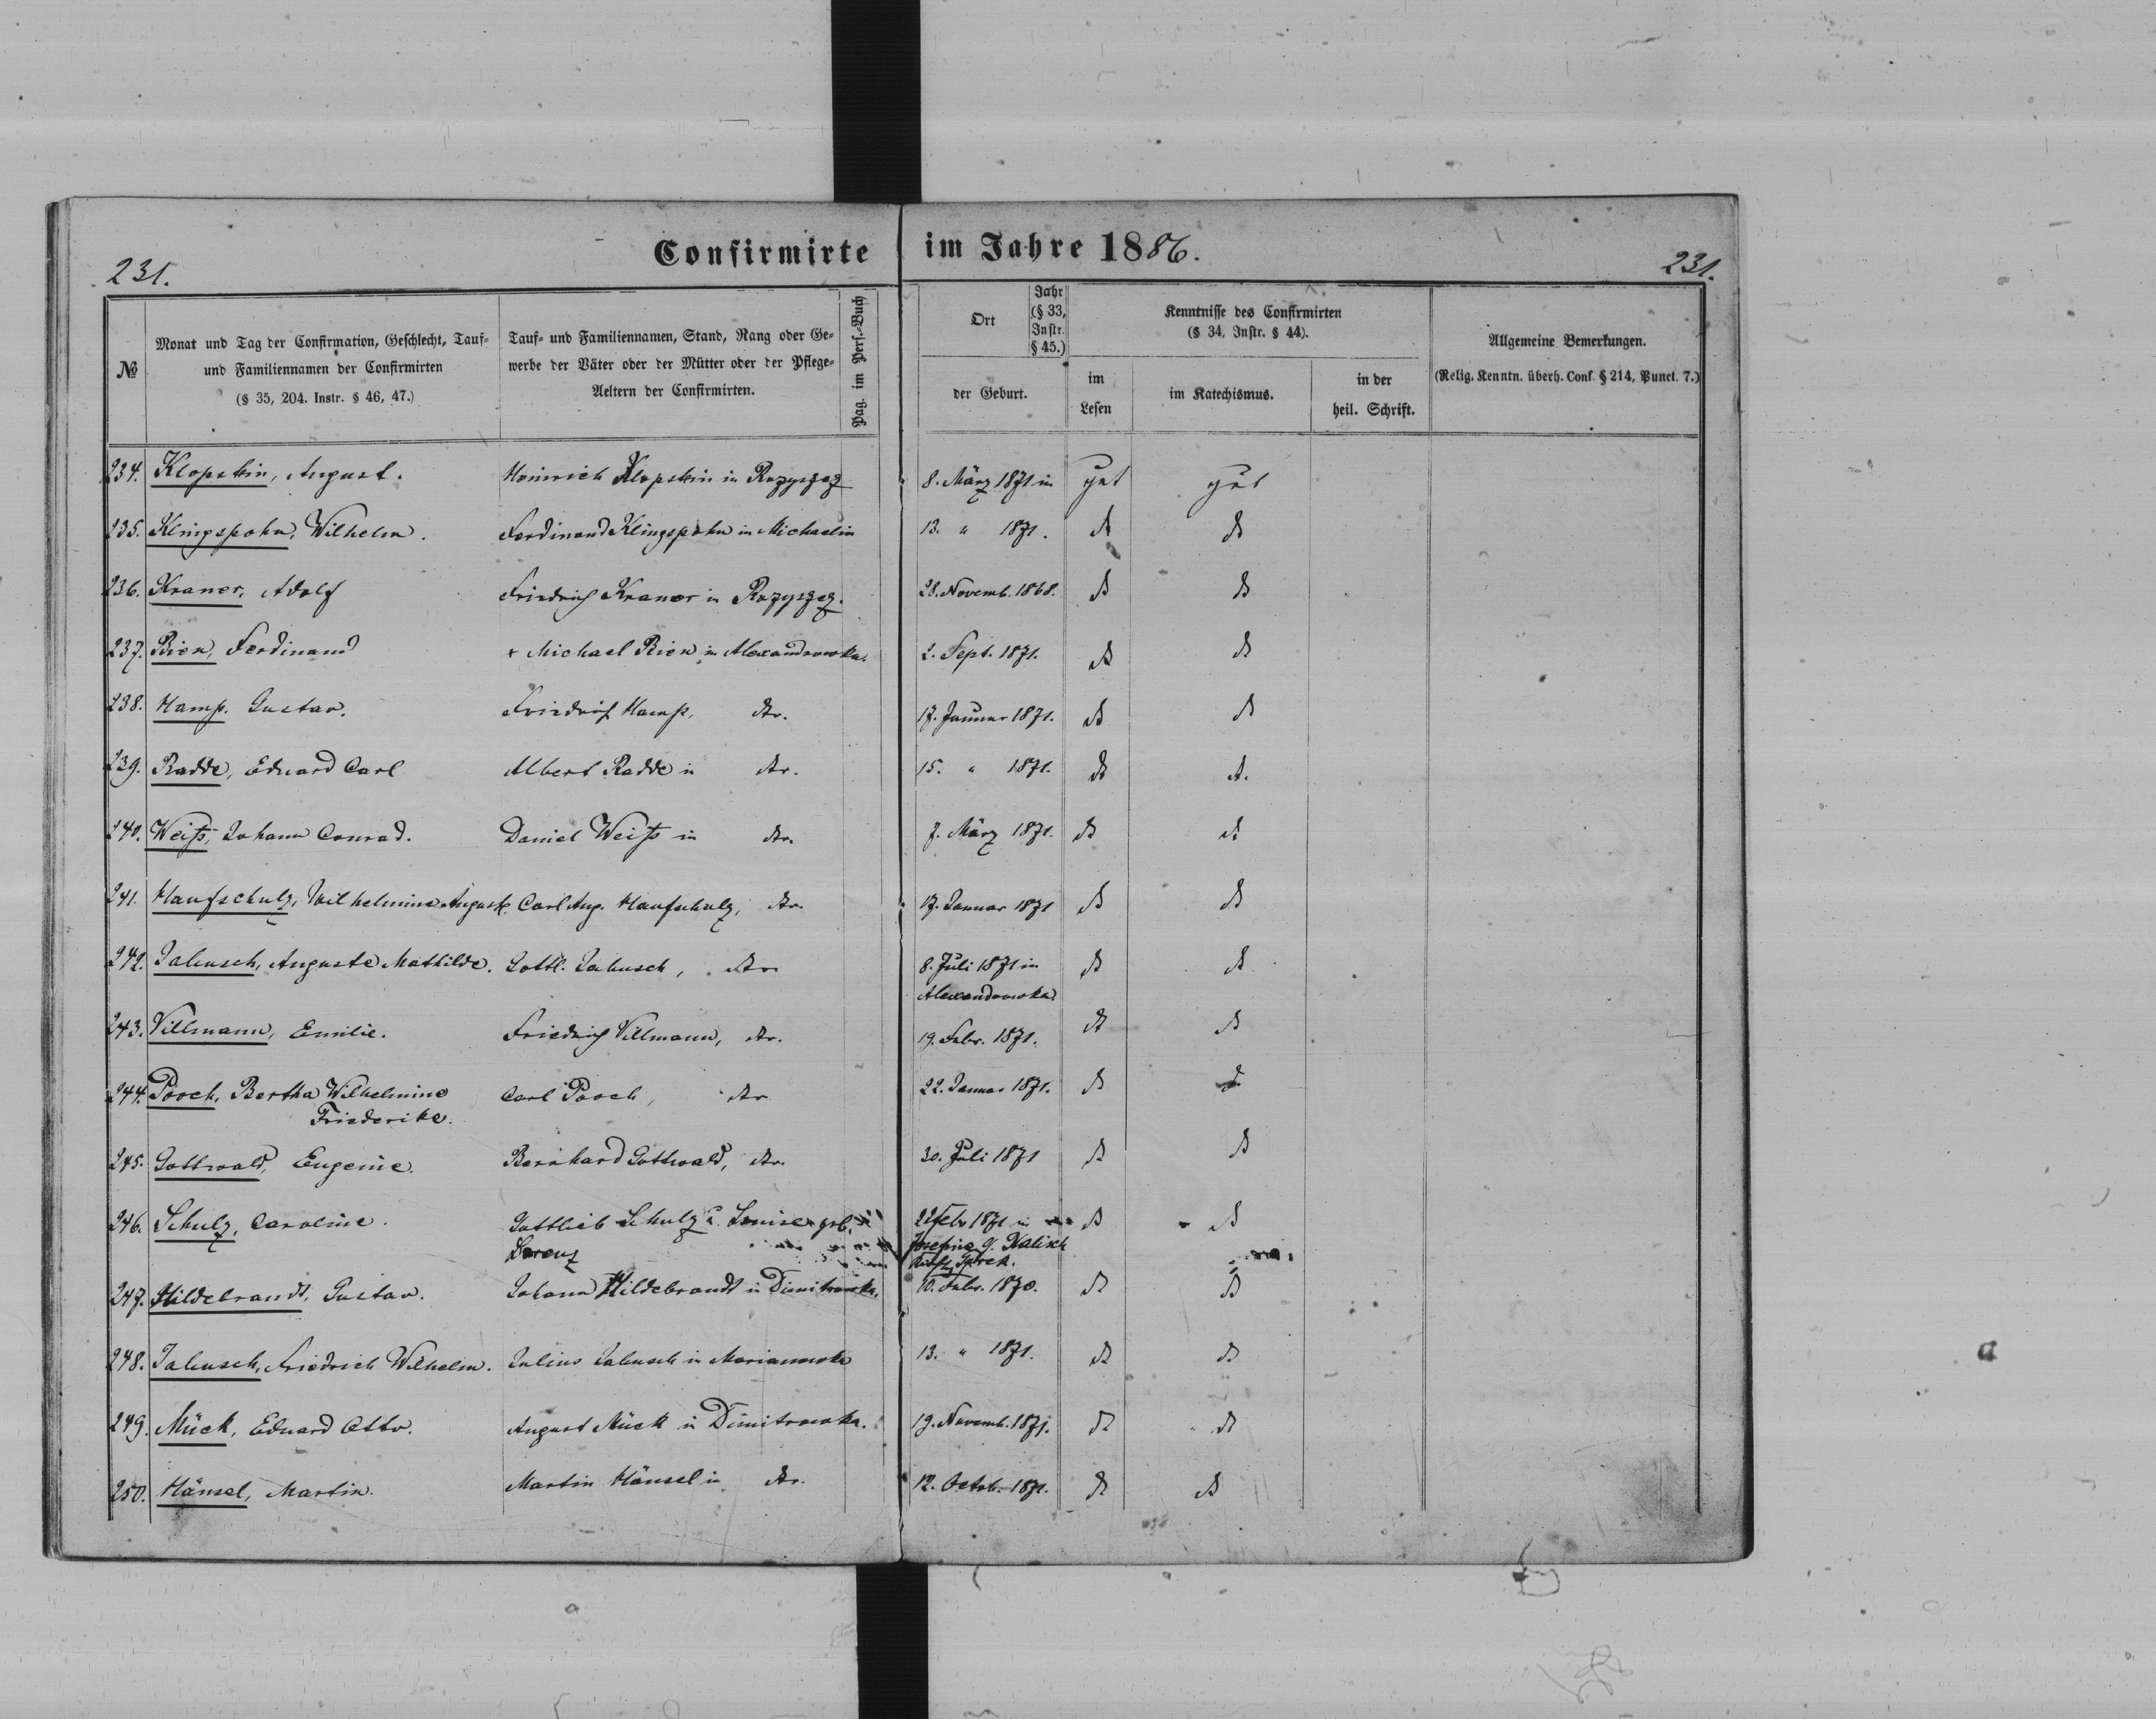 Confirmirte im Jahre 1886.
231. 231.
№
Monat und Tag der Confirmation, Geschlecht, Tauf-
und Familiennamen der Confirmirten
(§ 35, 204. Instr. § 46, 47.)
Tauf- und Familiennamen, Stand, Rang oder Ge-
werbe der Väter oder der Mütter oder der Pflege-
Aeltern der Confirmirten.
Pag. im Pers.-Buch
Ort
Jahr
(§ 33,
Instr.
§ 45.)
der Geburt.
Kenntnisse des Confirmirten
(§ 34, Instr. § 44).
im
Lesen
im Katechismus.
in der
heil. Schrift.
Allgemeine Bemerkungen.
(Relig. Kenntn. überh. Conf. § 214, Punct. 7.)
234. Klopstin, August. Heinrich Klopstin in Rozyszcz 8. März 1871 in gut gut
235. Klingspohn, Wilhelm. Ferdinand Klingspohn in Michaelin 13. " 1871.
236. Kraner, Adolf Friedrich Kraner in Rozyszcz. 28. Novemb. 1868.
237. Rien, Ferdinand + Michael Rien in Alexandrowka. 2. Sept. 1871.
238. Hamp. Gustav. Friedrich Hamp, 17. Januar 1871.
239. Radde, Eduard Carl Albert Radde in 15. " 1871.
240. Weiß, Johann Conrad. Daniel Weiß in 7. März 1871.
241. Haufschulz, Wilhelmine August. Carl Aug. Haufschulz, 17. Januar 1871
242. Jabusch, Auguste Mathilde. Gottl. Jabusch, 8. Juli 1871 in
Alexandrowka
243. Villmann, Emilie. Friedrich Villmann, 19. Febr. 1871.
244. Pooch, Bertha Wilhelmine Carl Pooch, 22. Januar 1871.
Friederike.
245. Gottwald, Eugenie. Bernhard Gottwald, 30. Juli 1871
246. Schulz, Caroline. Gottlieb Schulz u. Louise geb. 22 Febr 1871 in
Lorenz Josefine g. Kalisch
247. Hildebrandt, Gustav. Johann Hildebrandt in Dimitrowka. 10. Febr. 1870.
248. Jabusch, Friedrich Wilhelm. Julius Jabusch in Marianowka 13. " 1871.
249. Mück, Eduard Otto. August Mück in Dimitrowka. 19. Novemb. 1871.
250. Hänsel, Martin. Martin Hänsel in 12. Octob. 1871.